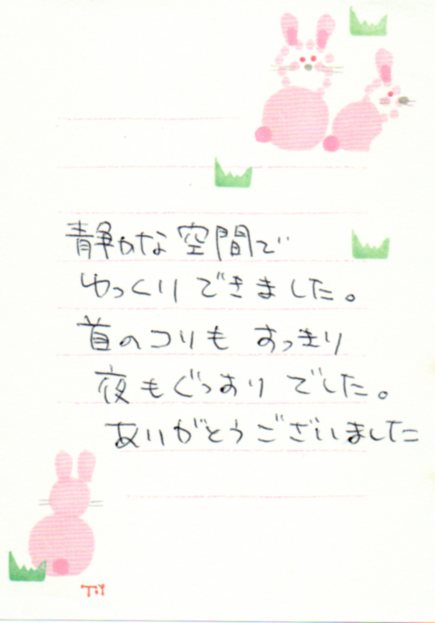 静かな空間で
ゆっくりできました。
首のコリもすっきり
夜もぐっすりでした。
ありがとうございました